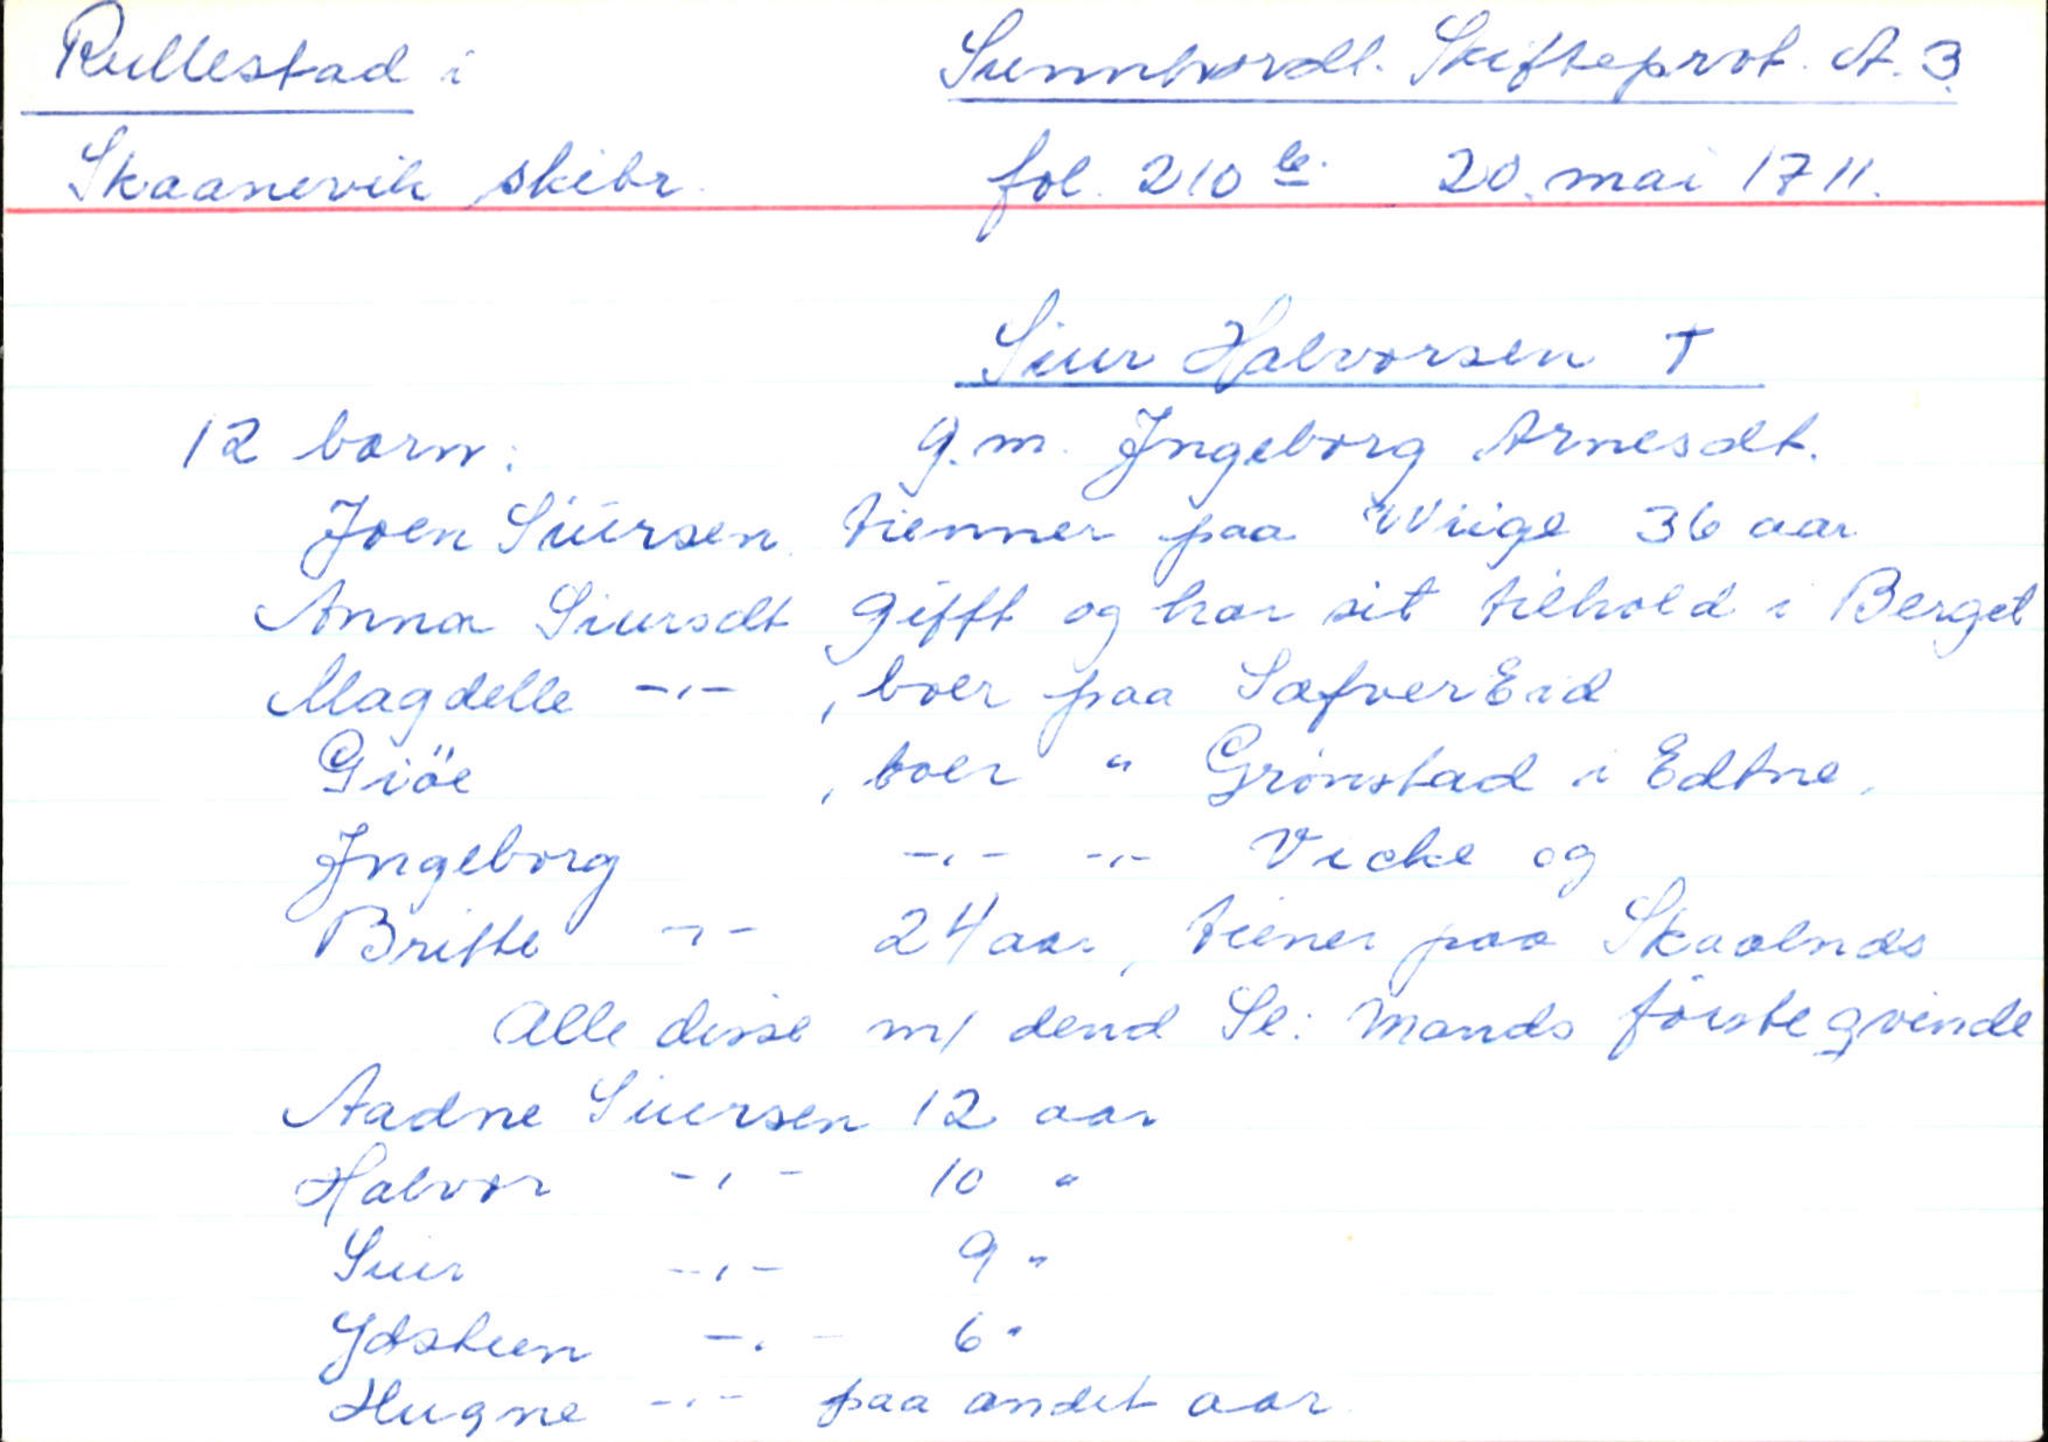 Rullestad i Sunnhordl. Skifteprot. A. 3.
Skaanevik skibr. fol. 210 b. 20. mai 1711.
Siur Halvorsen †
12 born: g.m. Ingeborg Arnesdt.
Joen Siursen tienner paa Wiige 36 aar
Anna Siursdt gifft og har sit tilhold i Berget
Magdelle -"- , boer paa SæfverEid
Giöe , boer " Grönstad i Edtne,
Ingeborg -"- -"- Vicke og
Britte -"- 24 aar, tiener paa Skaalnæs
Alle disse m/ dend Sl: Mands förste qvinde
Aadne Siursen 12 aar
Halvor -"- 10 "
Siur -"- 9 "
Ydsteen -"- 6 "
Hugne -"- paa andet aar